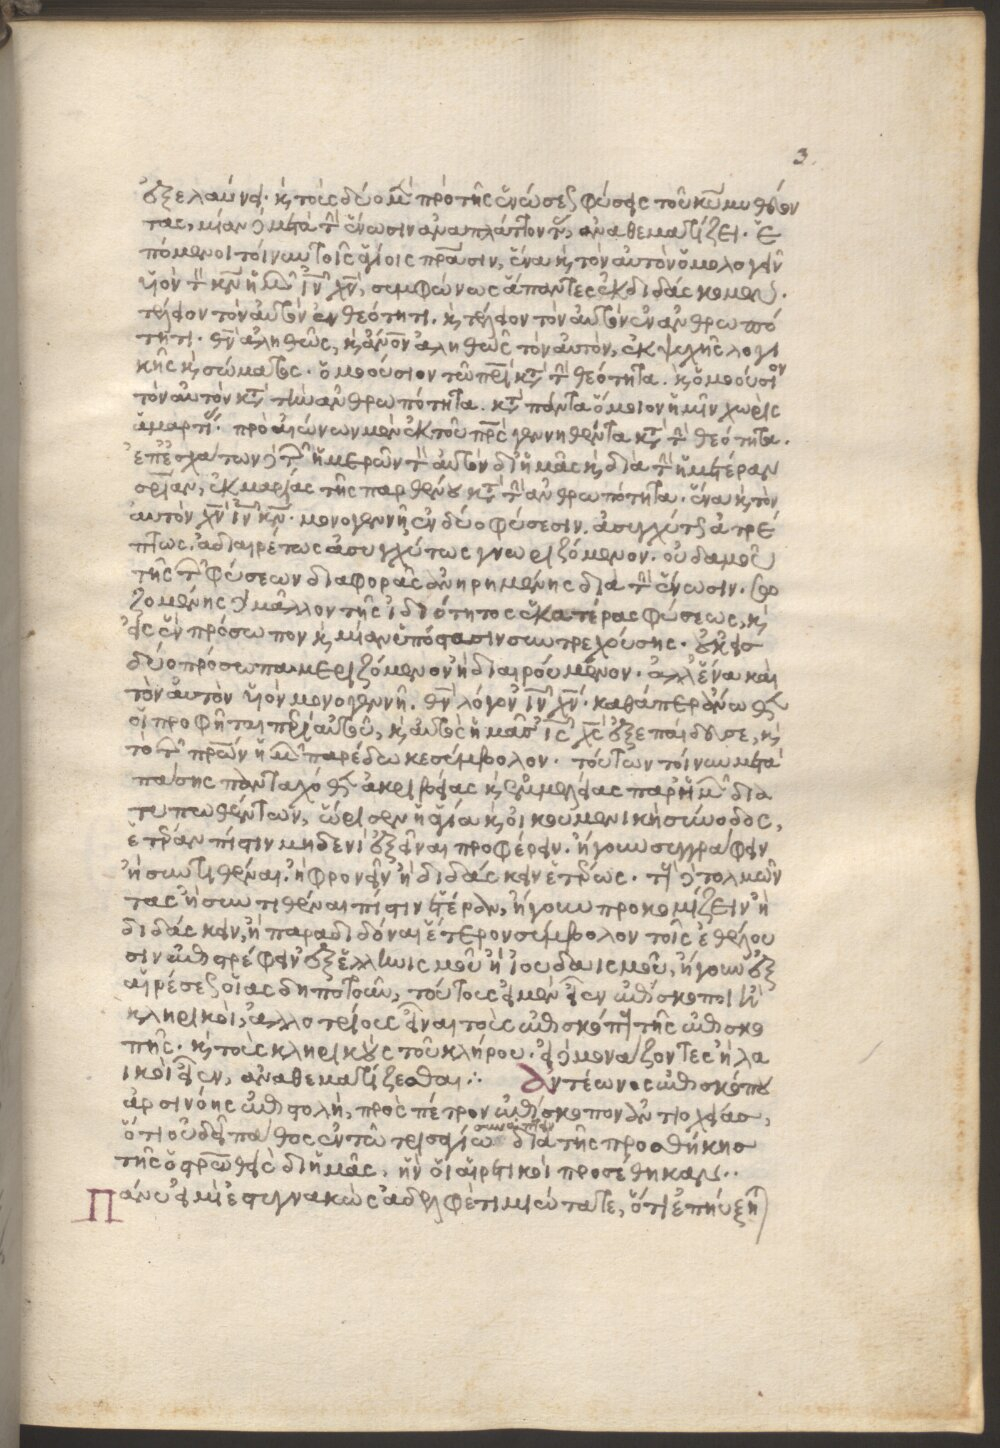 3
ἐξελαύνει· καὶ τοὺς δύο μὲν πρὸ τῆς ἑνώσεως φύσεις τοῦ κυρίου μυθεύον
τας, μίαν δὲ μετὰ τὴν ἕνωσιν ἀναπλάττοντας, ἀναθεματίζει. ἑ
πόμενοι τοίνυν τοῖς ἁγίοις πατράσιν, ἕνα καὶ τὸν αὐτὸν ὁμολογεῖν
υἱὸν τὸν κν ἡμῶν ιν χν, συμφώνως ἅπαντες ἐκδιδάσκομεν.
τέλειον τὸν αὐτὸν ἐν θεότητι. καὶ τέλειον τὸν αὐτὸν ἐν ἀνθρωπό
τητι. θν ἀληθῶς, καὶ ἄνον ἀληθῶς τὸν αὐτὸν, ἐκ ψυχῆς λογι
κῆς καὶ σώματος. ὁμοούσιον τῷ πρι κατὰ τὴν θεότητα. καὶ ὁμοούσιον
τὸν αὐτὸν κατὰ τὴν ἀνθρωπότητα. κατὰ πάντα ὅμοιον ἡμῖν χωρὶς
ἁμαρτίας. πρὸ αἰώνων μὲν ἐκ τοῦ πρς γεννηθέντα κατὰ τὴν θεότητα.
ἐπ' ἐσχάτων δὲ τῶν ἡμερῶν τὸν αὐτὸν δι' ἡμᾶς καὶ διὰ τὴν ἡμετέραν
σρίαν, ἐκ μαρίας τῆς παρθένου κατὰ τὴν ἀνθρωπότητα. ἕνα καὶ τὸν
αὐτὸν χν ιν κν. μονογενῆ ἐν δύο φύσεσιν. ἀσυγχύτως ἀτρέ
πτως. ἀδιαιρέτως ἀσυγχύτως γνωριζόμενον. οὐδαμοῦ
τῆς τῶν φύσεων διαφορᾶς ἀνῃρημένης διὰ τὴν ἕνωσιν. σω
ζομένης δὲ μᾶλλον τῆς ἰδιότητος ἑκατέρας φύσεως, καὶ
εἰς ἓν πρόσωπον καὶ μίαν ὑπόστασιν συντρεχούσης. οὐκ εἰς
δύο πρόσωπα μεριζόμενον ἢ διαιρούμενον. ἀλλ' ἕνα καὶ
τὸν αὐτὸν υἱὸν μονογενῆ. θν λόγον ιν χν. καθάπερ ἄνωθεν
οἱ προφῆται περὶ αὐτοῦ, καὶ αὐτὸς ἡμᾶς ις χς ἐξεπαίδευσε, καὶ
τὸ τῶν πρων ἡμῶν παρέδωκε σύμβολον. τούτων τοίνυν μετὰ
πάσης πανταχόθεν ἀκριβείας καὶ ἐμμελείας παρ' ἡμῶν δια
τυπωθέντων, ὥρισεν ἡ ἁγία καὶ οἰκουμενικὴ σύνοδος,
ἑτέραν πίστιν μηδενὶ ἐξεῖναι προφέρειν. ἤγουν συγγράφειν
ἢ συντιθέναι. ἢ φρονεῖν ἢ διδάσκειν ἑτέρως. τοὺς δὲ τολμῶν
τας ἢ συντιθέναι πίστιν ἑτέραν, ἤγουν προκομίζειν ἢ
διδάσκειν, ἢ παραδιδόναι ἕτερον σύμβολον τοῖς ἐθέλου
σιν ἐπιστρέφειν ἐξ ἑλληνισμοῦ ἢ ἰουδαισμοῦ, ἤγουν ἐξ
αἱρέσεως οἵας δηποτοῦν, τούτους εἰ μὲν εἶεν ἐπίσκοποι ἢ
κληρικοὶ, ἀλλοτρίους εἶναι τοὺς ἐπισκόπους τῆς ἐπισκο
πῆς. καὶ τοὺς κληρικοὺς τοῦ κλήρου. εἰ δὲ μονάζοντες ἢ λα
ικοὶ εἶεν, ἀναθεματίζεσθαι ∴ Ἀντέωνος ἐπισκόπου
ἀρσινόης ἐπιστολὴ, πρὸς πέτρον ἐπίσκοπον ἀντιοχείας,
ὅτι οὐδὲν πάθος ἐν τῷ τρισαγίῳ συνάπτειν διὰ τῆς προσθήκης
τῆς ὁ σταυρωθεὶς δι' ἡμᾶς, ἣν οἱ αἱρετικοὶ προσέθηκαν..
Πάνυ εἰμὶ ἐστυγνακὼς ἀδελφὲ τιμιώτατε, ὅτι ἐπηύξη